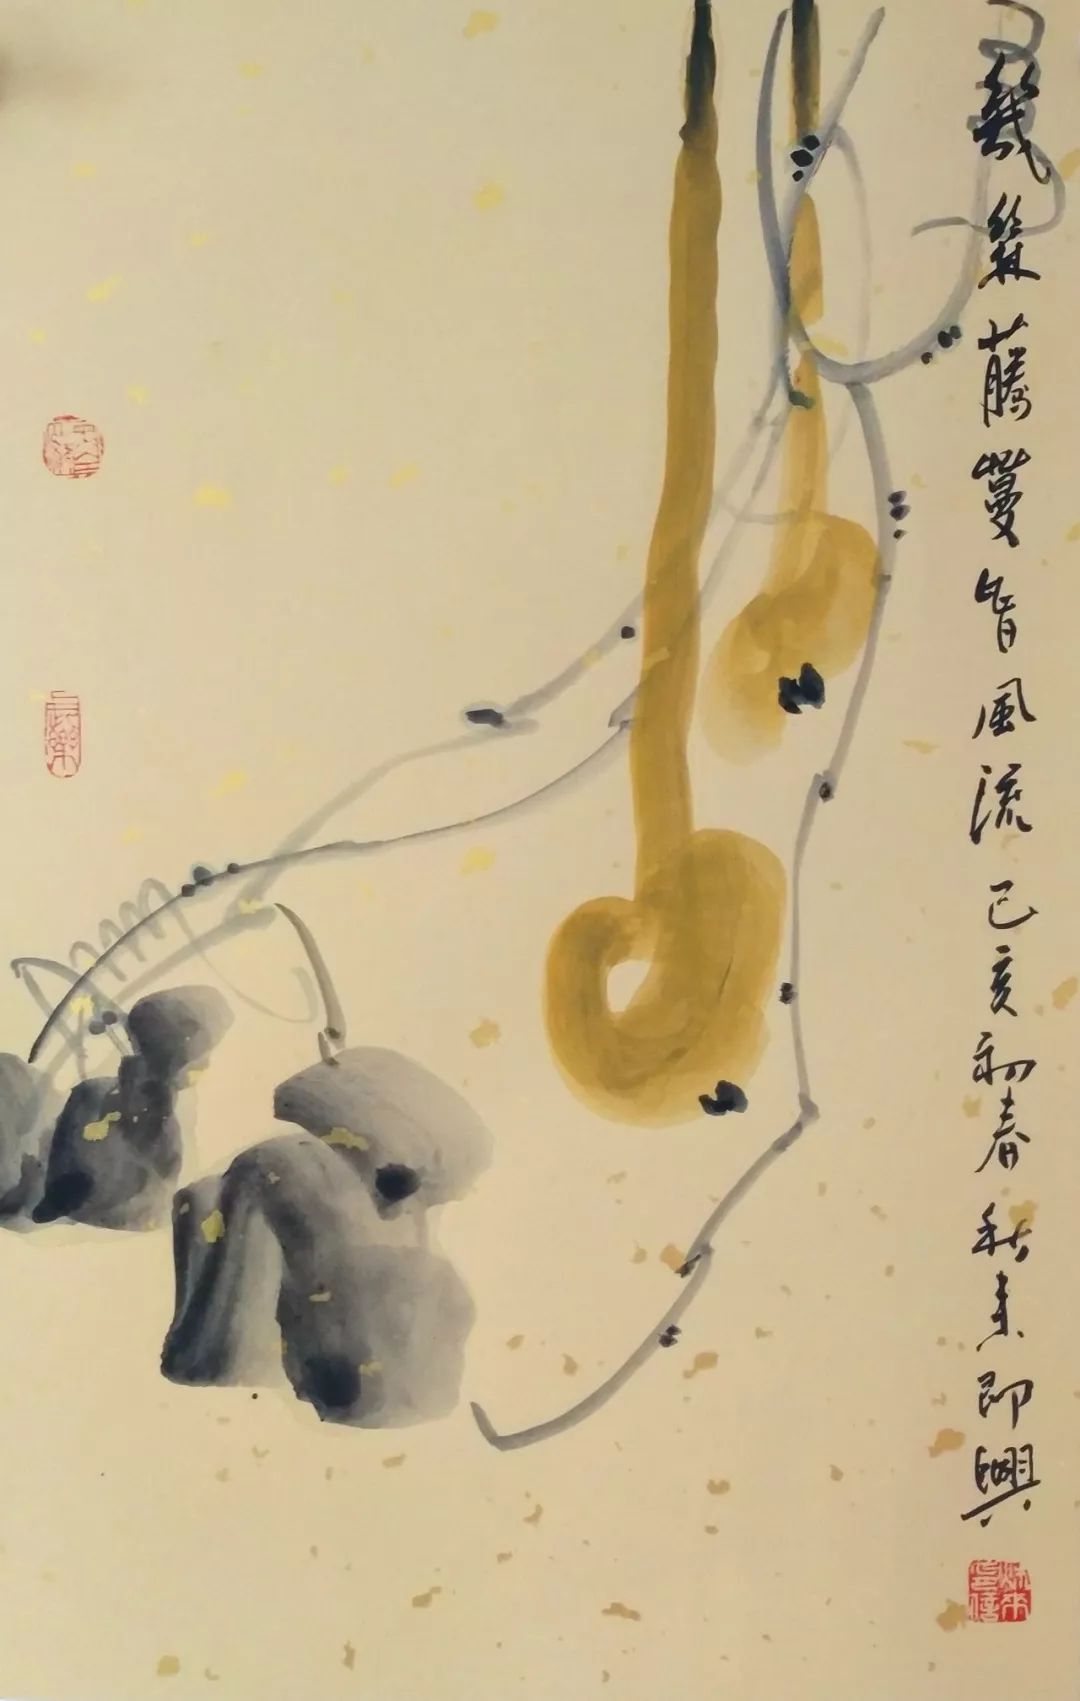 幾絲藤蔓皆風流己亥初春秋来即興